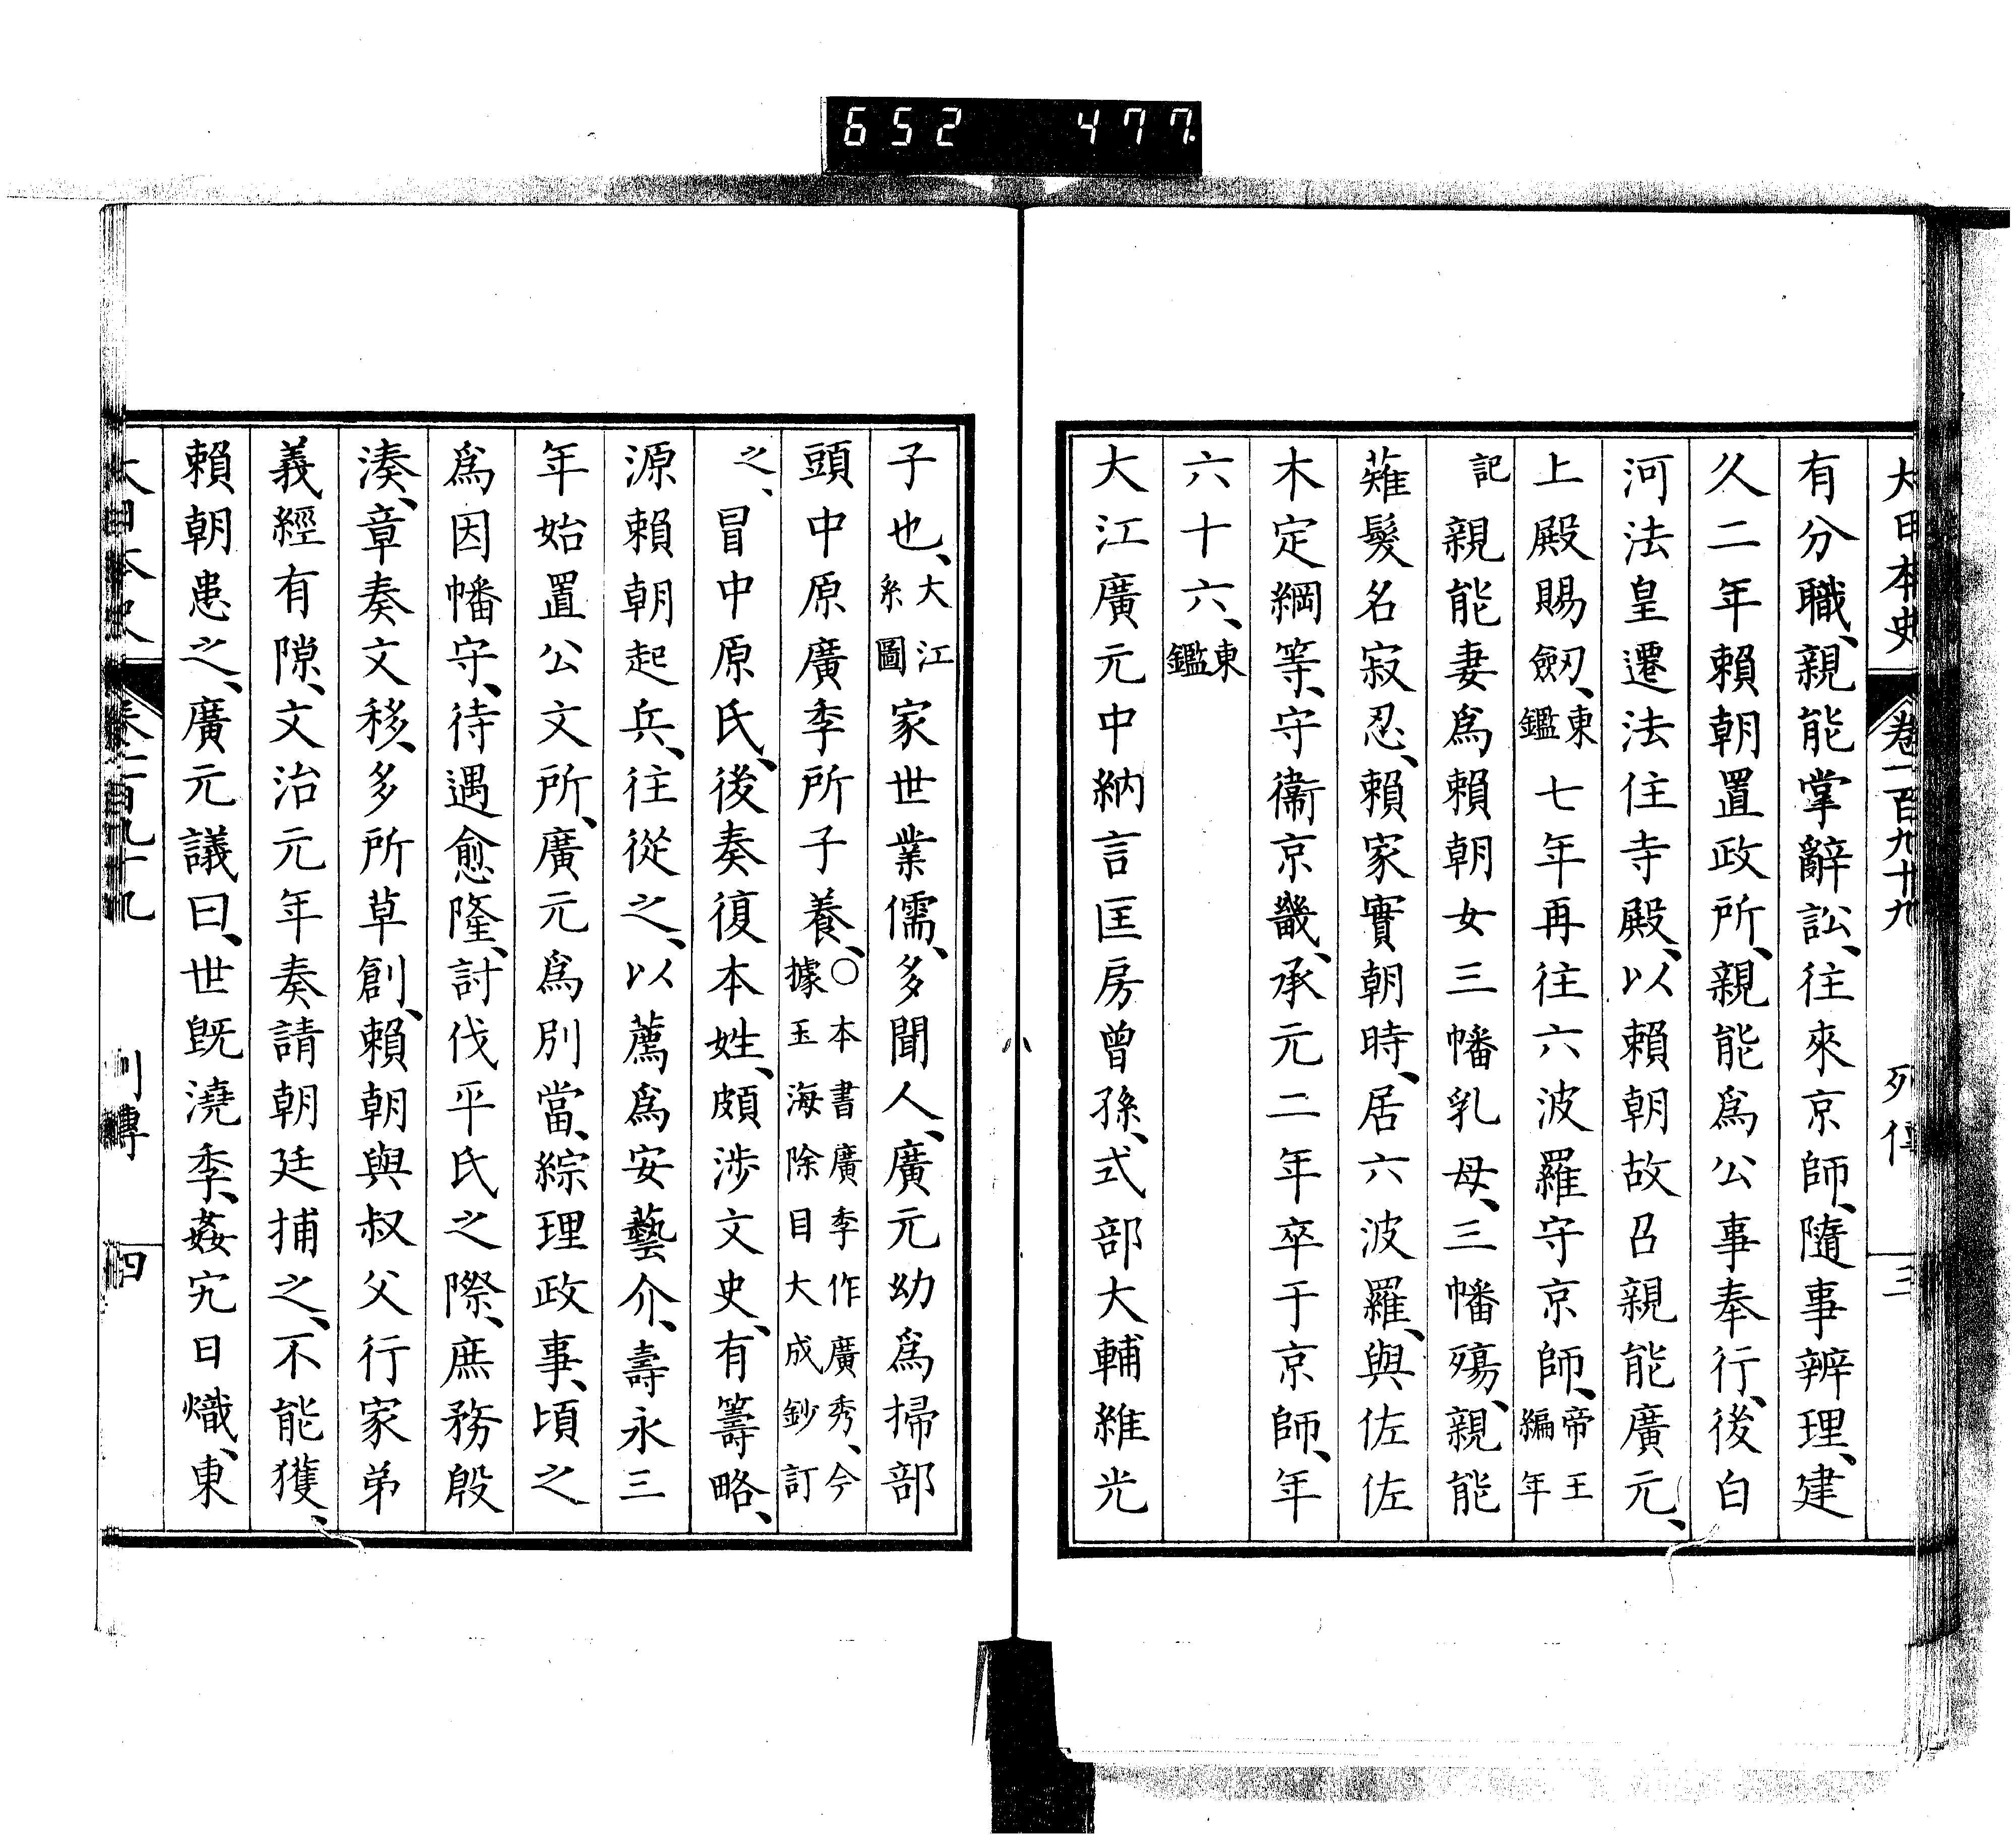 652 477.
大日本史 卷一百九十九 列傳 三
有分職、親能掌辭訟、往來京師、隨事辨理、建
久二年賴朝置政所、親能爲公事奉行、後白
河法皇遷法住寺殿、以賴朝故召親能廣元、
上殿賜劔、東鑑七年再往六波羅守京師、帝王編年
記親能妻爲賴朝女三幡乳母、三幡殤、親能
薙髮名寂忍、賴家實朝時、居六波羅、與佐佐
木定綱等、守衞京畿、承元二年卒于京師、年
六十六、東鑑
大江廣元中納言匡房曾孫、式部大輔維光
八
子也、大江系圖家世業儒、多聞人、廣元幼爲掃部
頭中原廣季所子養、○本書廣季作廣秀、今據玉海除目大成鈔訂
之、冒中原氏、後奏復本姓、頗涉文史、有籌略、
源賴朝起兵、往從之、以薦爲安藝介、壽永三
年始置公文所、廣元爲別當、綜理政事、頃之
爲因幡守、待遇愈隆、討伐平氏之際、庶務殷
湊、章奏文移、多所草創、賴朝與叔父行家弟
義經有隙、文治元年奏請朝廷捕之、不能獲、
賴朝患之、廣元議曰、世既澆季、姦宄日熾、東
大日本史 卷一百九十九 列傳 四